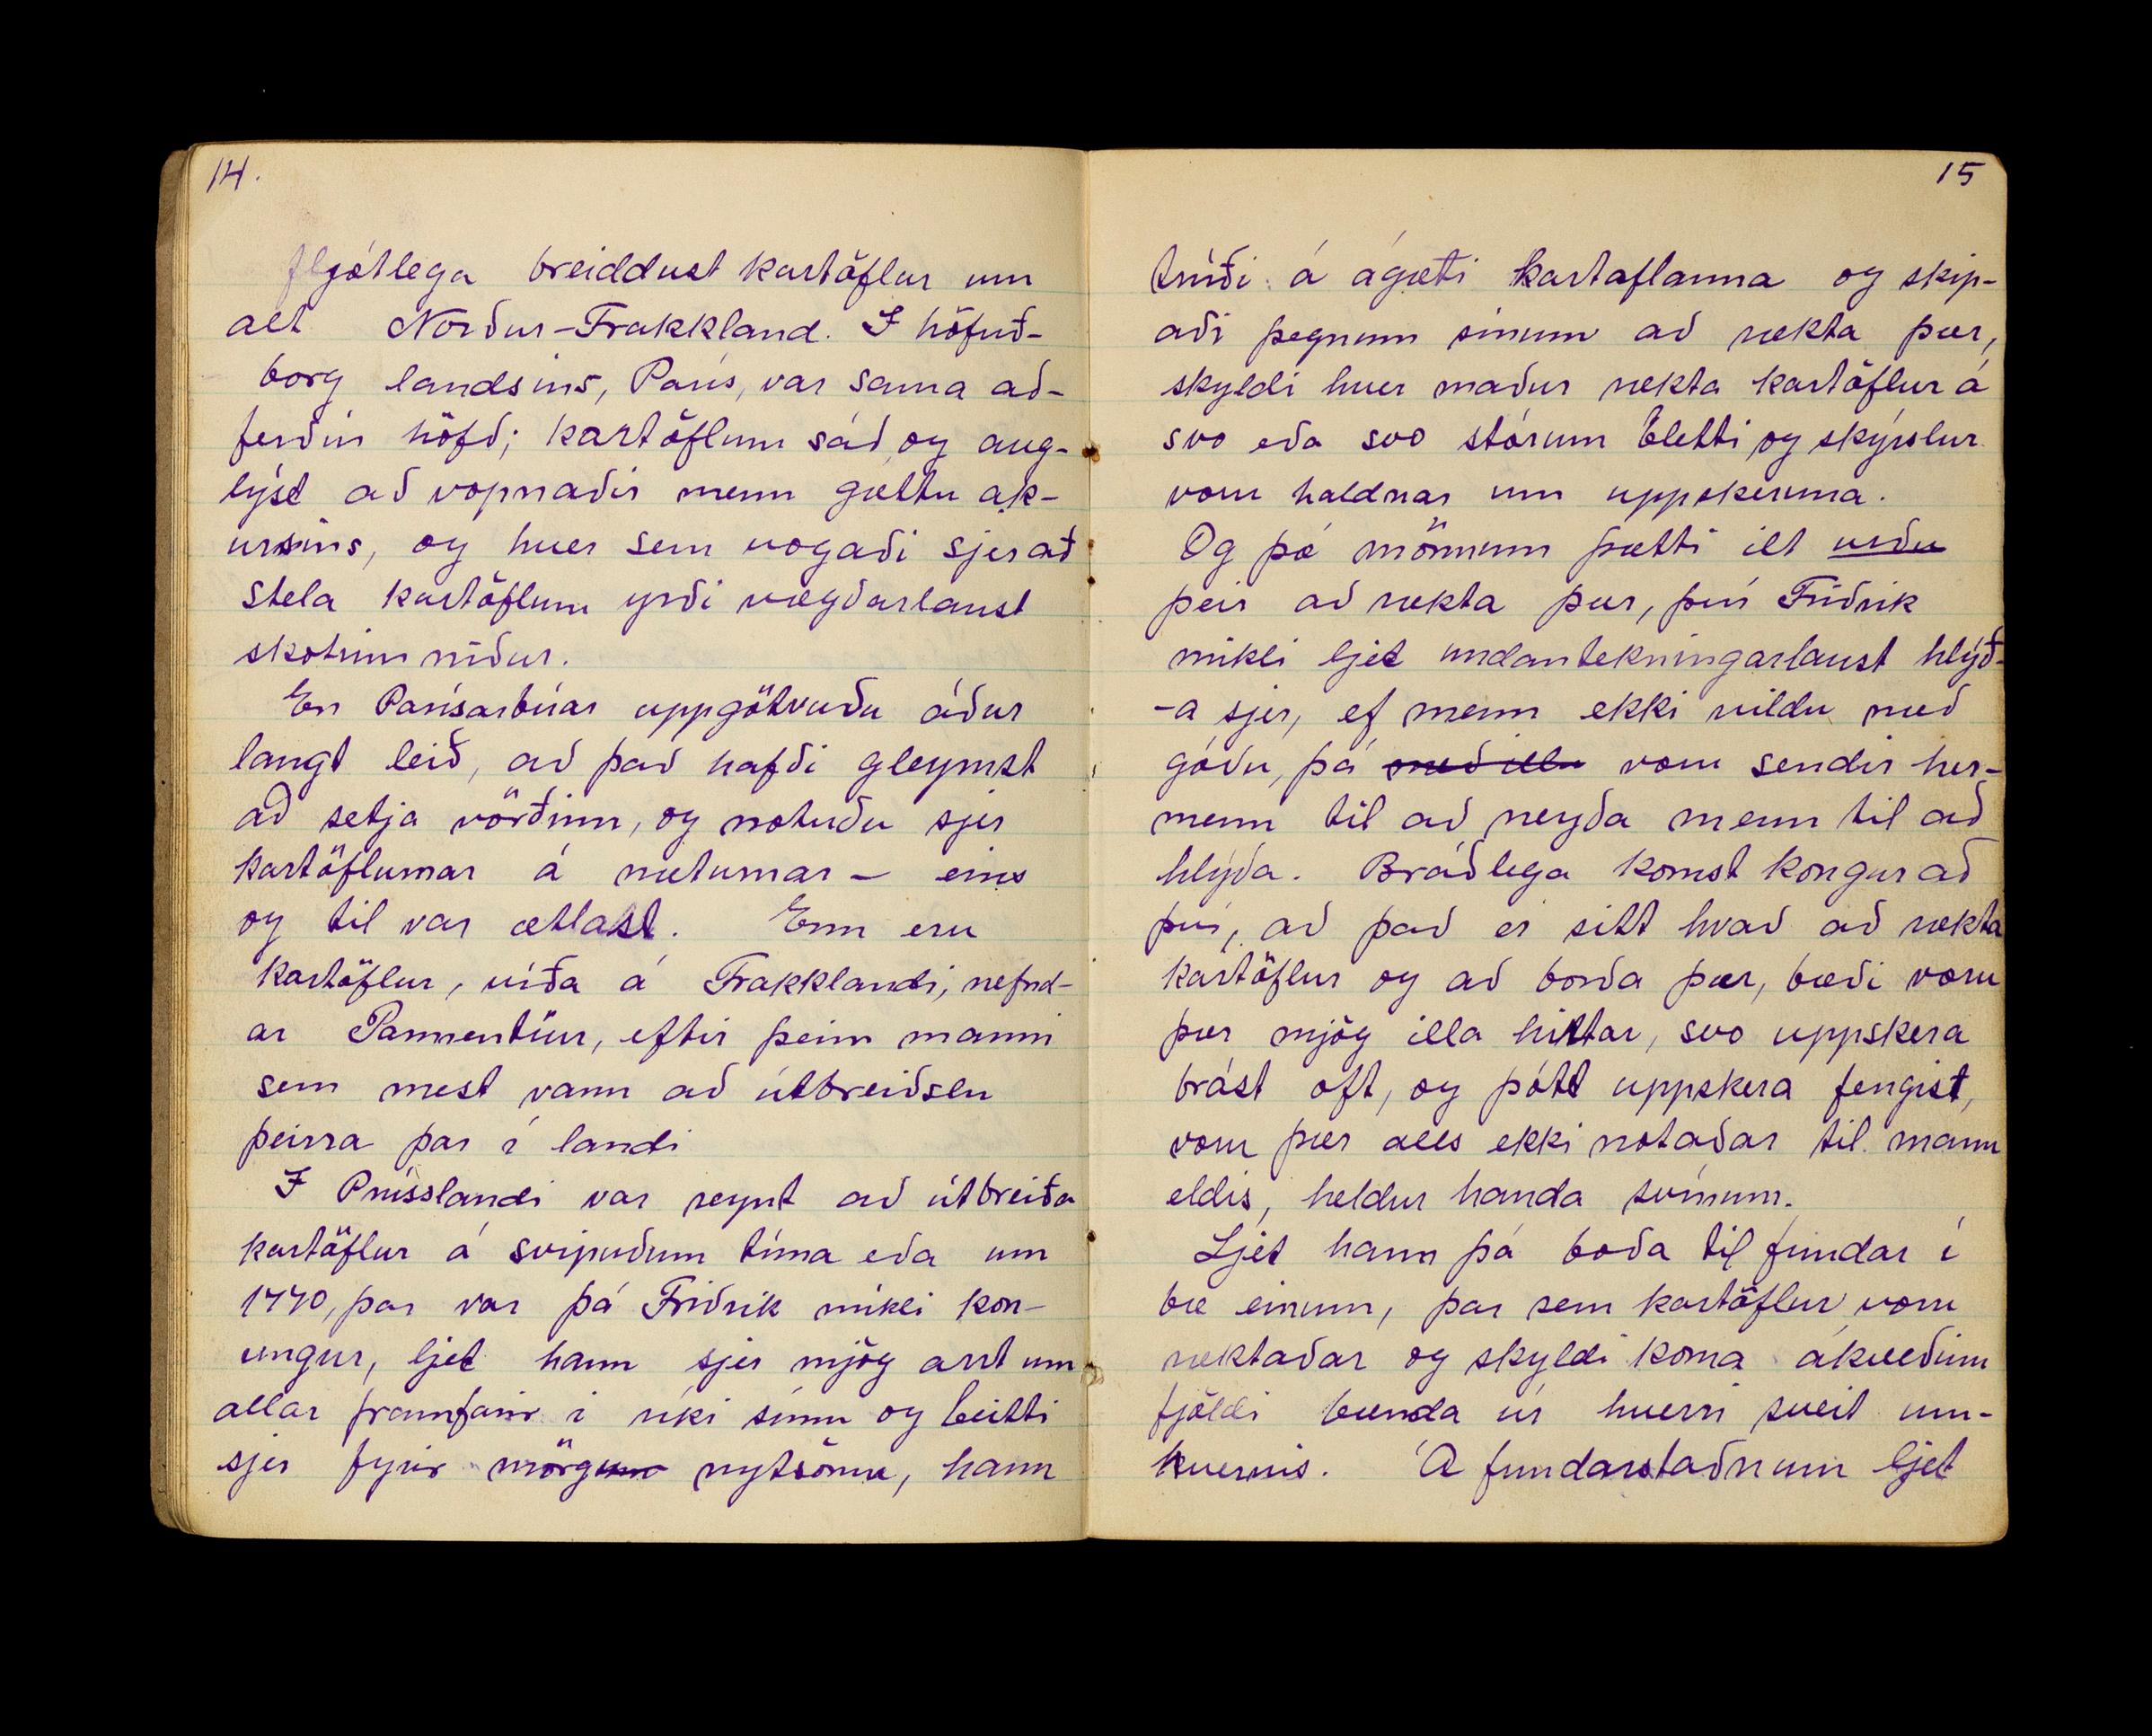 14.
fljótlega breiddust kartöflur um
alt Norður-Frakkland. Í höfuð-
borg landsins, París, var sama að-
ferðin höfð; kartöflum sáð, og aug-
lýst að vopnaðir menn gættu ak-
ursins, og hver sem vogaði sjer að
stela kartöflum yrði vægðarlaust
skotinn niður.
En Parísarbúar uppgötvuðu áður
langt leið, að það hafði gleymst
að setja vörðinn, og notuðu sjer
kartöflurnar á næturnar - eins
og til var ætlast. Enn eru
kartöflur, víða á Frakklandi, nefnd-
ar Parmentíur, eftir þeim manni
sem mest vann að útbreiðslu
þeirra þar í landi
Í Prússlandi var reynt að útbreiða
kartöflur á svipuðum tíma eða um
1770, þar var þá Friðrik mikli kon-
ungur, ljet hann sjer mjög ant um
allar framfarir í ríki sínu og beitti
sjer fyrir mörgum nytsömu, hann
15
trúði á ágæti kartaflanna og skip-
aði þegnum sínum að rækta þær,
skyldi hver maður rækta kartöflur á
svo eða svo stórum bletti og skýrslur
voru haldnar um uppskeruna.
Og þó mönnum þætti ilt urðu
þeir að rækta þær, því Friðrik
mikli ljet undantekningarlaust hlýð-
-a sjer, ef menn ekki vildu með
góðu, þá með illu voru sendir her-
menn til að neyða menn til að
hlýða. Bráðlega komst kongur að
því, að það er sitt hvað að rækta
kartöflur og að borða þær, bæði voru
þær mjög illa hirtar, svo uppskera
brást oft, og þótt uppskera fengist,
voru þær alls ekki notaðar til mann
eldis, heldur handa svínum.
Ljet hann þá boða til fundar í
bæ einum, þar sem kartöflur voru
ræktaðar og skyldi koma ákveðinn
fjöldi bænda úr hverri sveit um-
hverfis. Á fundarstaðnum ljet